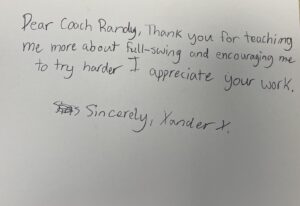 Dear Coach Randy, Thank you for teaching
me more about full-swing and encouraging me
to try harder I appreciate your work.
Sincerely, Xander X.